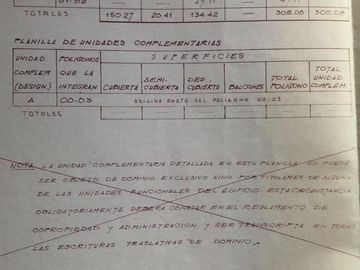 01-02
TOTALES 150.27 20.41 134.42 305.08 305.08
PLANILLA DE UNIDADES COMPLEMENTARIAS
UNIDAD COMPLEM. (DESIGN.) POLIGONOS QUE LA INTEGRAN SUPERFICIES
CUBIERTA SEMI-CUBIERTA DES-CUBIERTA BALCONES TOTAL POLIGONO TOTAL UNIDAD COMPLEM.
A 00-03 DEL POLIGONO 00-03
TOTALES
NOTA: LA UNIDAD COMPLEMENTARIA DETALLADA EN ESTA PLANILLA NO PUEDE
SER OBJETO DE DOMINIO EXCLUSIVO SINO POR TITULARES DE ALGUNA
DE LAS UNIDADES FUNCIONALES DEL EDIFICIO. ESTA CIRCUNSTANCIA
OBLIGATORIAMENTE DEBERA CONSTAR EN EL REGLAMENTO DE
COPROPIEDAD Y ADMINISTRACION Y SER TRANSCRIPTA EN TODAS
LAS ESCRITURAS TRASLATIVAS DE DOMINIO.-